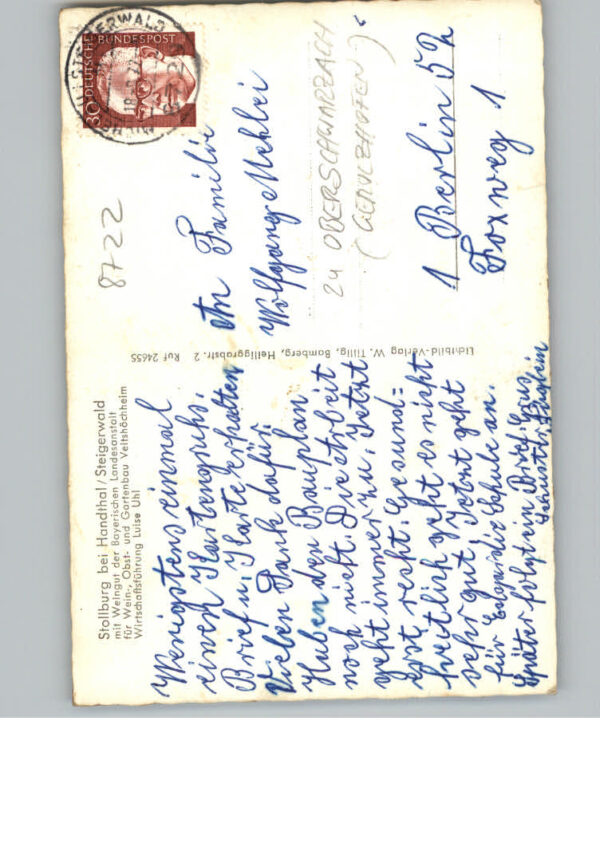 Stollburg bei Handthal/Steigerwald
mit Weingut der Bayerischen Landesanstalt
für Wein-, Obst- und Gartenbau Veitshöchheim
Wirtschaftsführung Luise Uhl
Wenigstens einmal
einen Kartengruß.
Brief u. Karte erhalten
Vielen Dank dafür
Haben den Bauplan
noch nicht. Die Arbeit
geht immer zu, Jetzt
erst recht. Gesund=
heitlich geht es nicht
sehr gut Jetzt geht
für die Schule an.
Später folgt ein Brief
Lichtbild-Verlag W. Tillig, Bamberg, Heiliggrabstr. 2 Ruf 24655
DEUTSCHE BUNDESPOST
30
STEIGERWALD
8722
An Familie
Wolfgang Mehlei
24 OBERSCHWARZACH
(GEROLZHOFEN)
1 Berlin 52
Foxweg 1